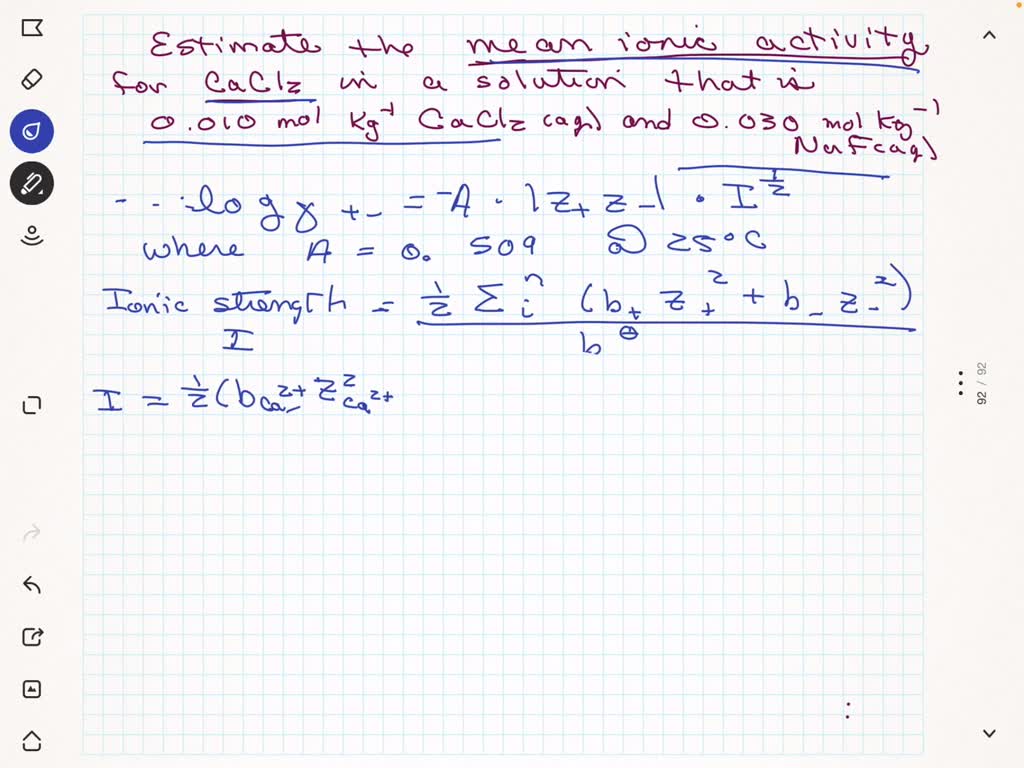 Estimate the mean ionic activity
for CaCl2 in a solution that is
0.010 mol Kg⁻¹ CaCl2 (aq) and 0.030 mol Kg⁻¹
NaF(aq)
log γ+- = -A · |Z+ Z-| · I^1/2
where A = 0.509 @ 25°C
Ionic strength = 1/2 Σ i n (b+ Z+² + b- Z-²)
I b⊖
I = 1/2 (b Ca²⁺ Z² Ca²⁺
92 / 92